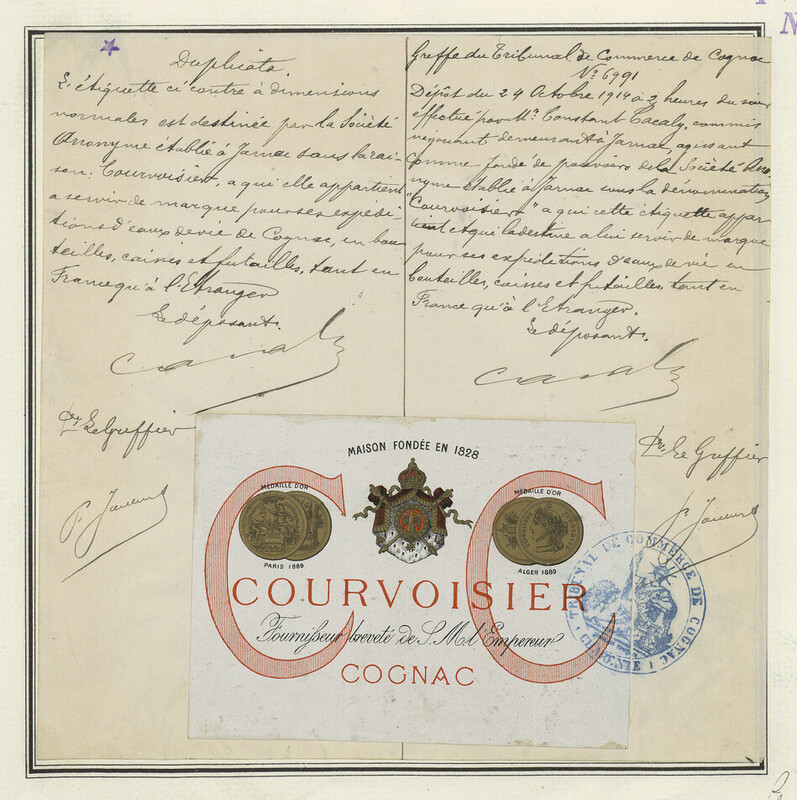 Duplicata.
L'étiquette ci contre à dimensions
normales est destinée par la Société
Anonyme établie à Jarnac sous la rai-
son: Courvoisier, a qui elle appartient
a servir de marque pour ses expédi-
tions d'eaux de vie de Cognac, en bou
teilles, caisses et futailles, tant en
France qu'à l'Etranger
Le déposant.
Pr. Le Greffier
Greffe du Tribunal de Commerce de Cognac
No 6991
Dépôt du 24 Octobre 1914 à 3 heures du soir
effectué par Mr. Constant Cacaly, commis
négociant demeurant à Jarnac, agissant
comme fondé de pouvoirs de la Société Ano
nyme établie à Jarnac sous la dénomination
"Courvoisier" a qui cette étiquette appar
tient et qui la destine a lui servir de marque
pour ses expéditions d'eaux de vie en
bouteilles, caisses et futailles tant en
France qu'à l'Etranger.
Le déposant.
Pr. Le Greffier
MAISON FONDÉE EN 1828
C C
MÉDAILLE D'OR
PARIS 1889
MÉDAILLE D'OR
ALGER 1889
COURVOISIER
Fournisseur breveté de S. M. l'Empereur
COGNAC
TRIBUNAL DE COMMERCE DE COGNAC